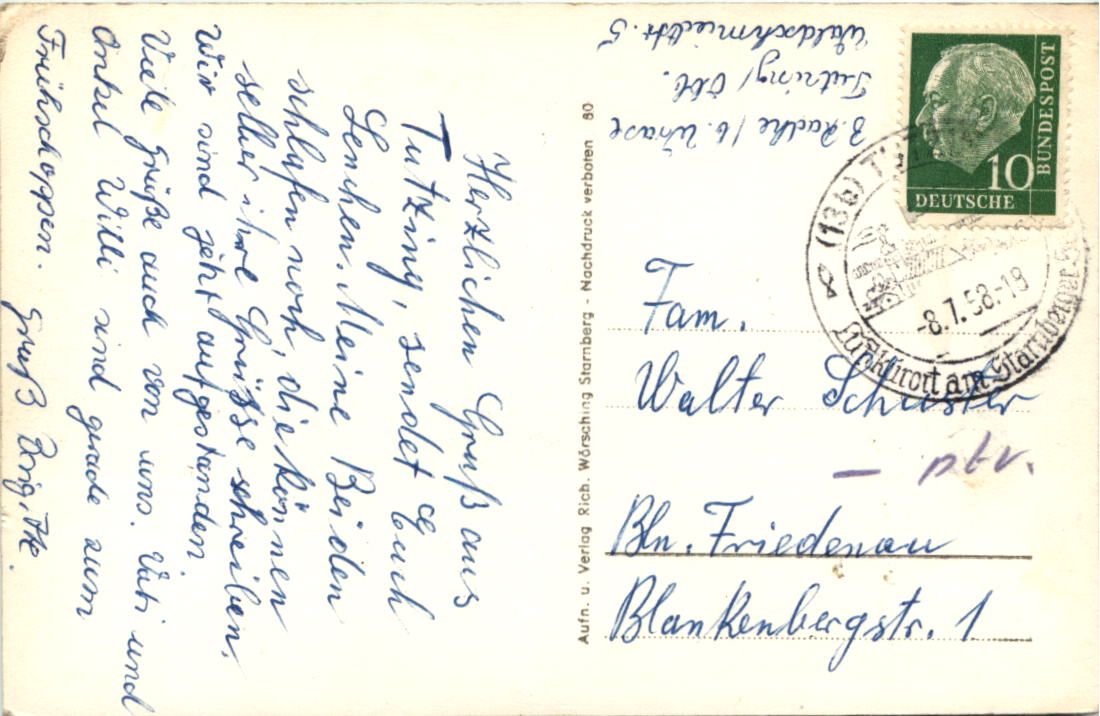 Herzlichen Gruß aus
Tutzing, sendet Euch
Lenchen. Meine Beiden
schlafen noch, die können
selber ihre Grüsse schreiben.
Wir sind jetzt aufgestanden.
Viele Grüße auch von uns. Vati und
Onkel Willi sind gerade zum
Frühschoppen. Gruß Brigitte.
Aufn. u. Verlag Rich. Wörsching Starnberg - Nachdruck verboten 80
B. Radke / b.
Tutzing / Obb.
Waldschmidtstr. 5
DEUTSCHE
BUNDESPOST
10
(13b) TUTZING
-8.7.58.-19
Luftkurort am Starnberg
Fam.
Walter Schuster
— ptr.
Bln. Friedenau
Blankenbergstr. 1